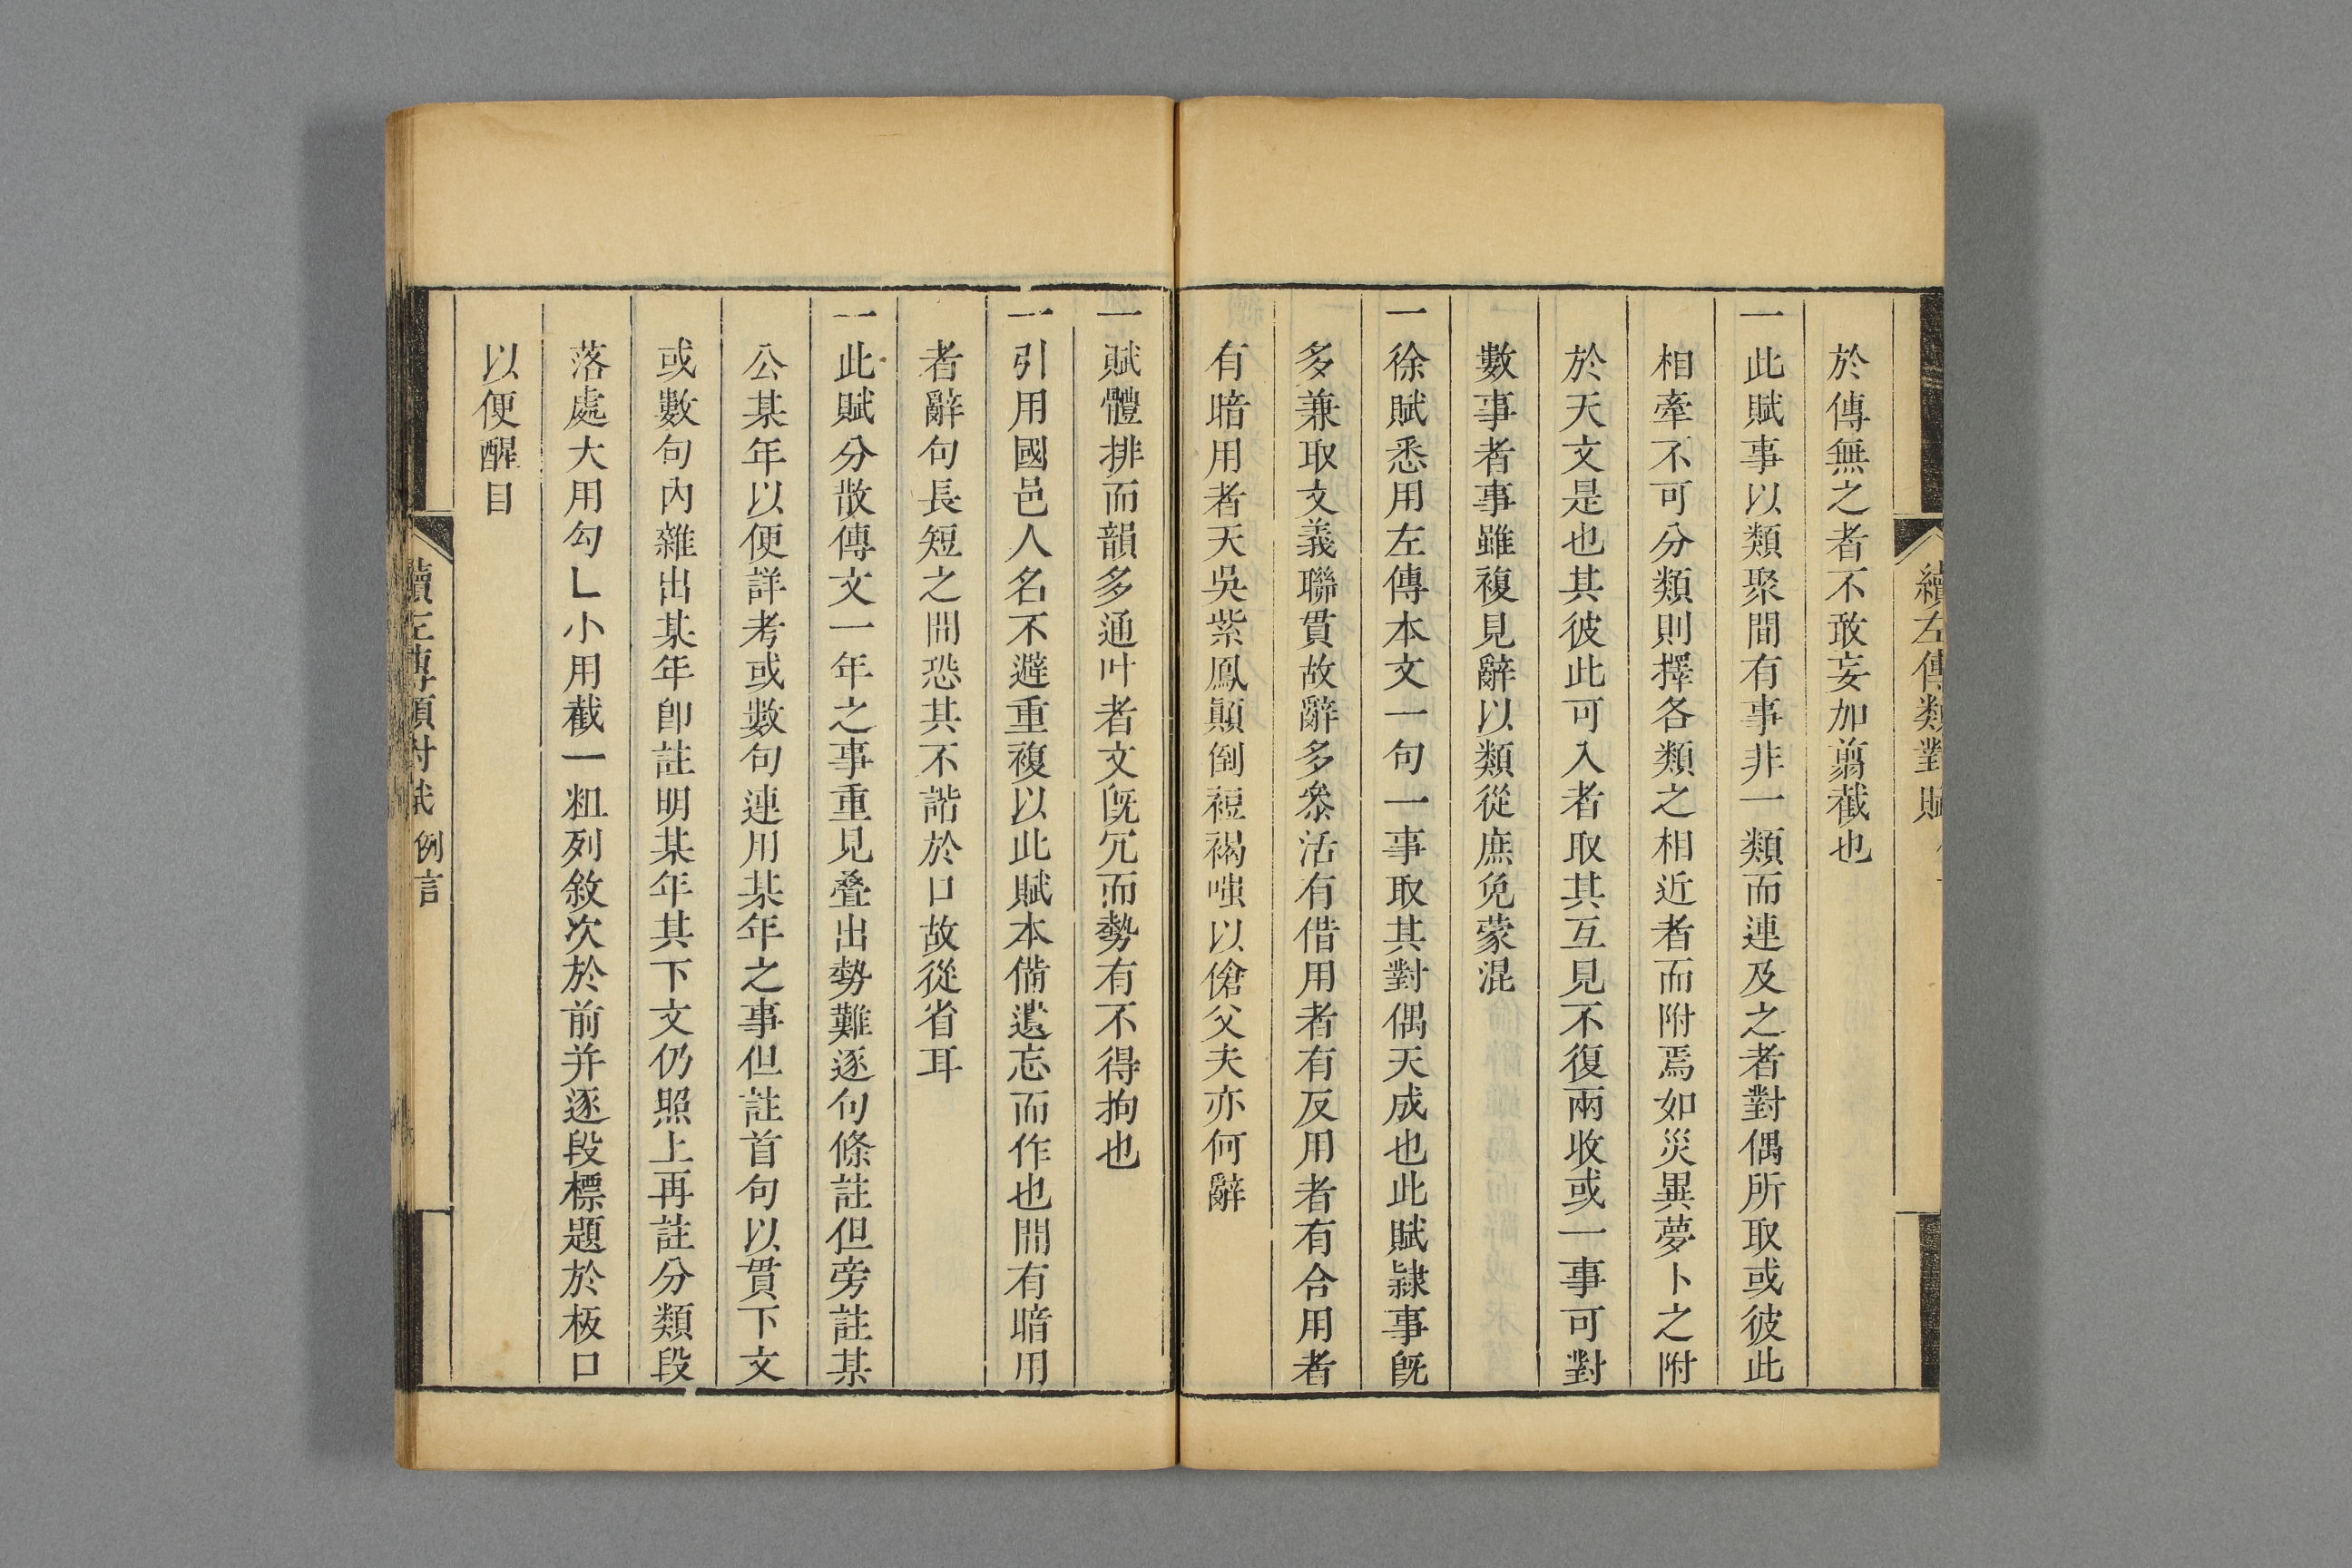 續左傳類對賦
於傳無之者不敢妄加翦截也
一此賦事以類聚間有事非一類而連及之者對偶所取或彼此
相牽不可分類則擇各類之相近者而附焉如災異夢卜之附
於天文是也其彼此可入者取其互見不復兩收或一事可對
數事者事雖複見辭以類從庶免蒙混
一徐賦悉用左傳本文一句一事取其對偶天成也此賦隷事旣
多兼取文義聯貫故辭多叅活有借用者有反用者有合用者
有暗用者天吳紫鳳顚倒裋褐嗤以傖父夫亦何辭
一賦體排而韻多通叶者文旣冗而勢有不得拘也
一引用國邑人名不避重複以此賦本備遺忘而作也間有暗用
者辭句長短之間恐其不諧於口故從省耳
一此賦分散傳文一年之事重見疊出勢難逐句條註但旁註某
公某年以便詳考或數句連用某年之事但註首句以貫下文
或數句內雜出某年卽註明某年其下文仍照上再註分類段
落處大用勾乚小用截一粗列敘次於前并逐段標題於板口
以便醒目
續左傳類對賦 例言